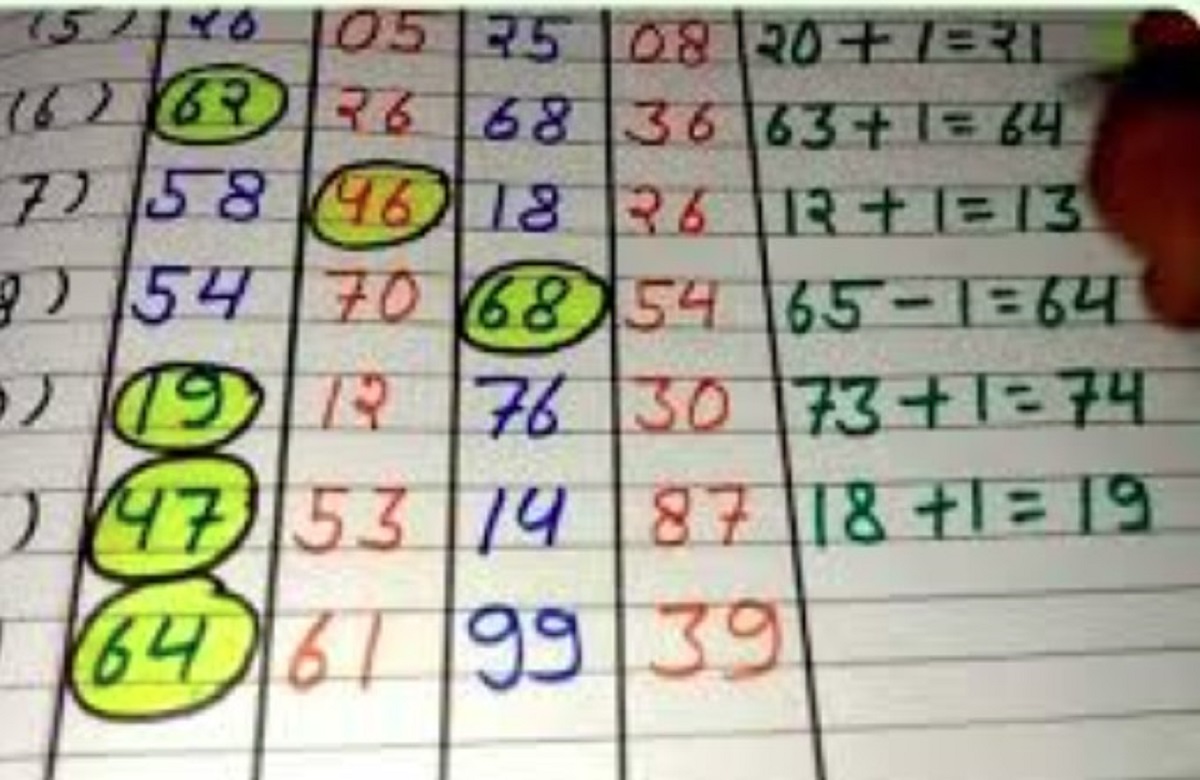 (5) 26 05 25 08 20 + 1 = 21
(6) 62 26 68 36 63 + 1 = 64
7) 58 46 18 26 12 + 1 = 13
8) 54 70 68 54 65 - 1 = 64
) 19 12 76 30 73 + 1 = 74
) 47 53 14 87 18 + 1 = 19
64 61 99 39